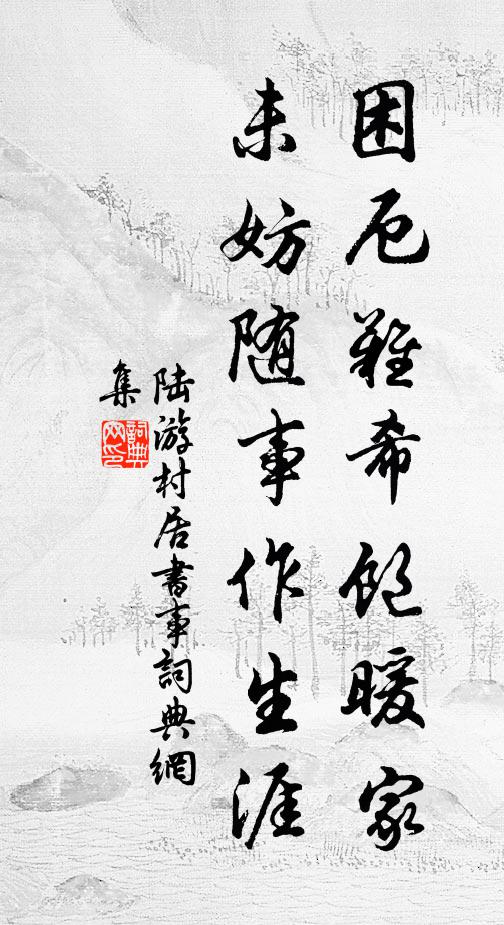 困厄难希饱暖家
未妨随事作生涯
陆游村居书事詞典網
集
詞典网印